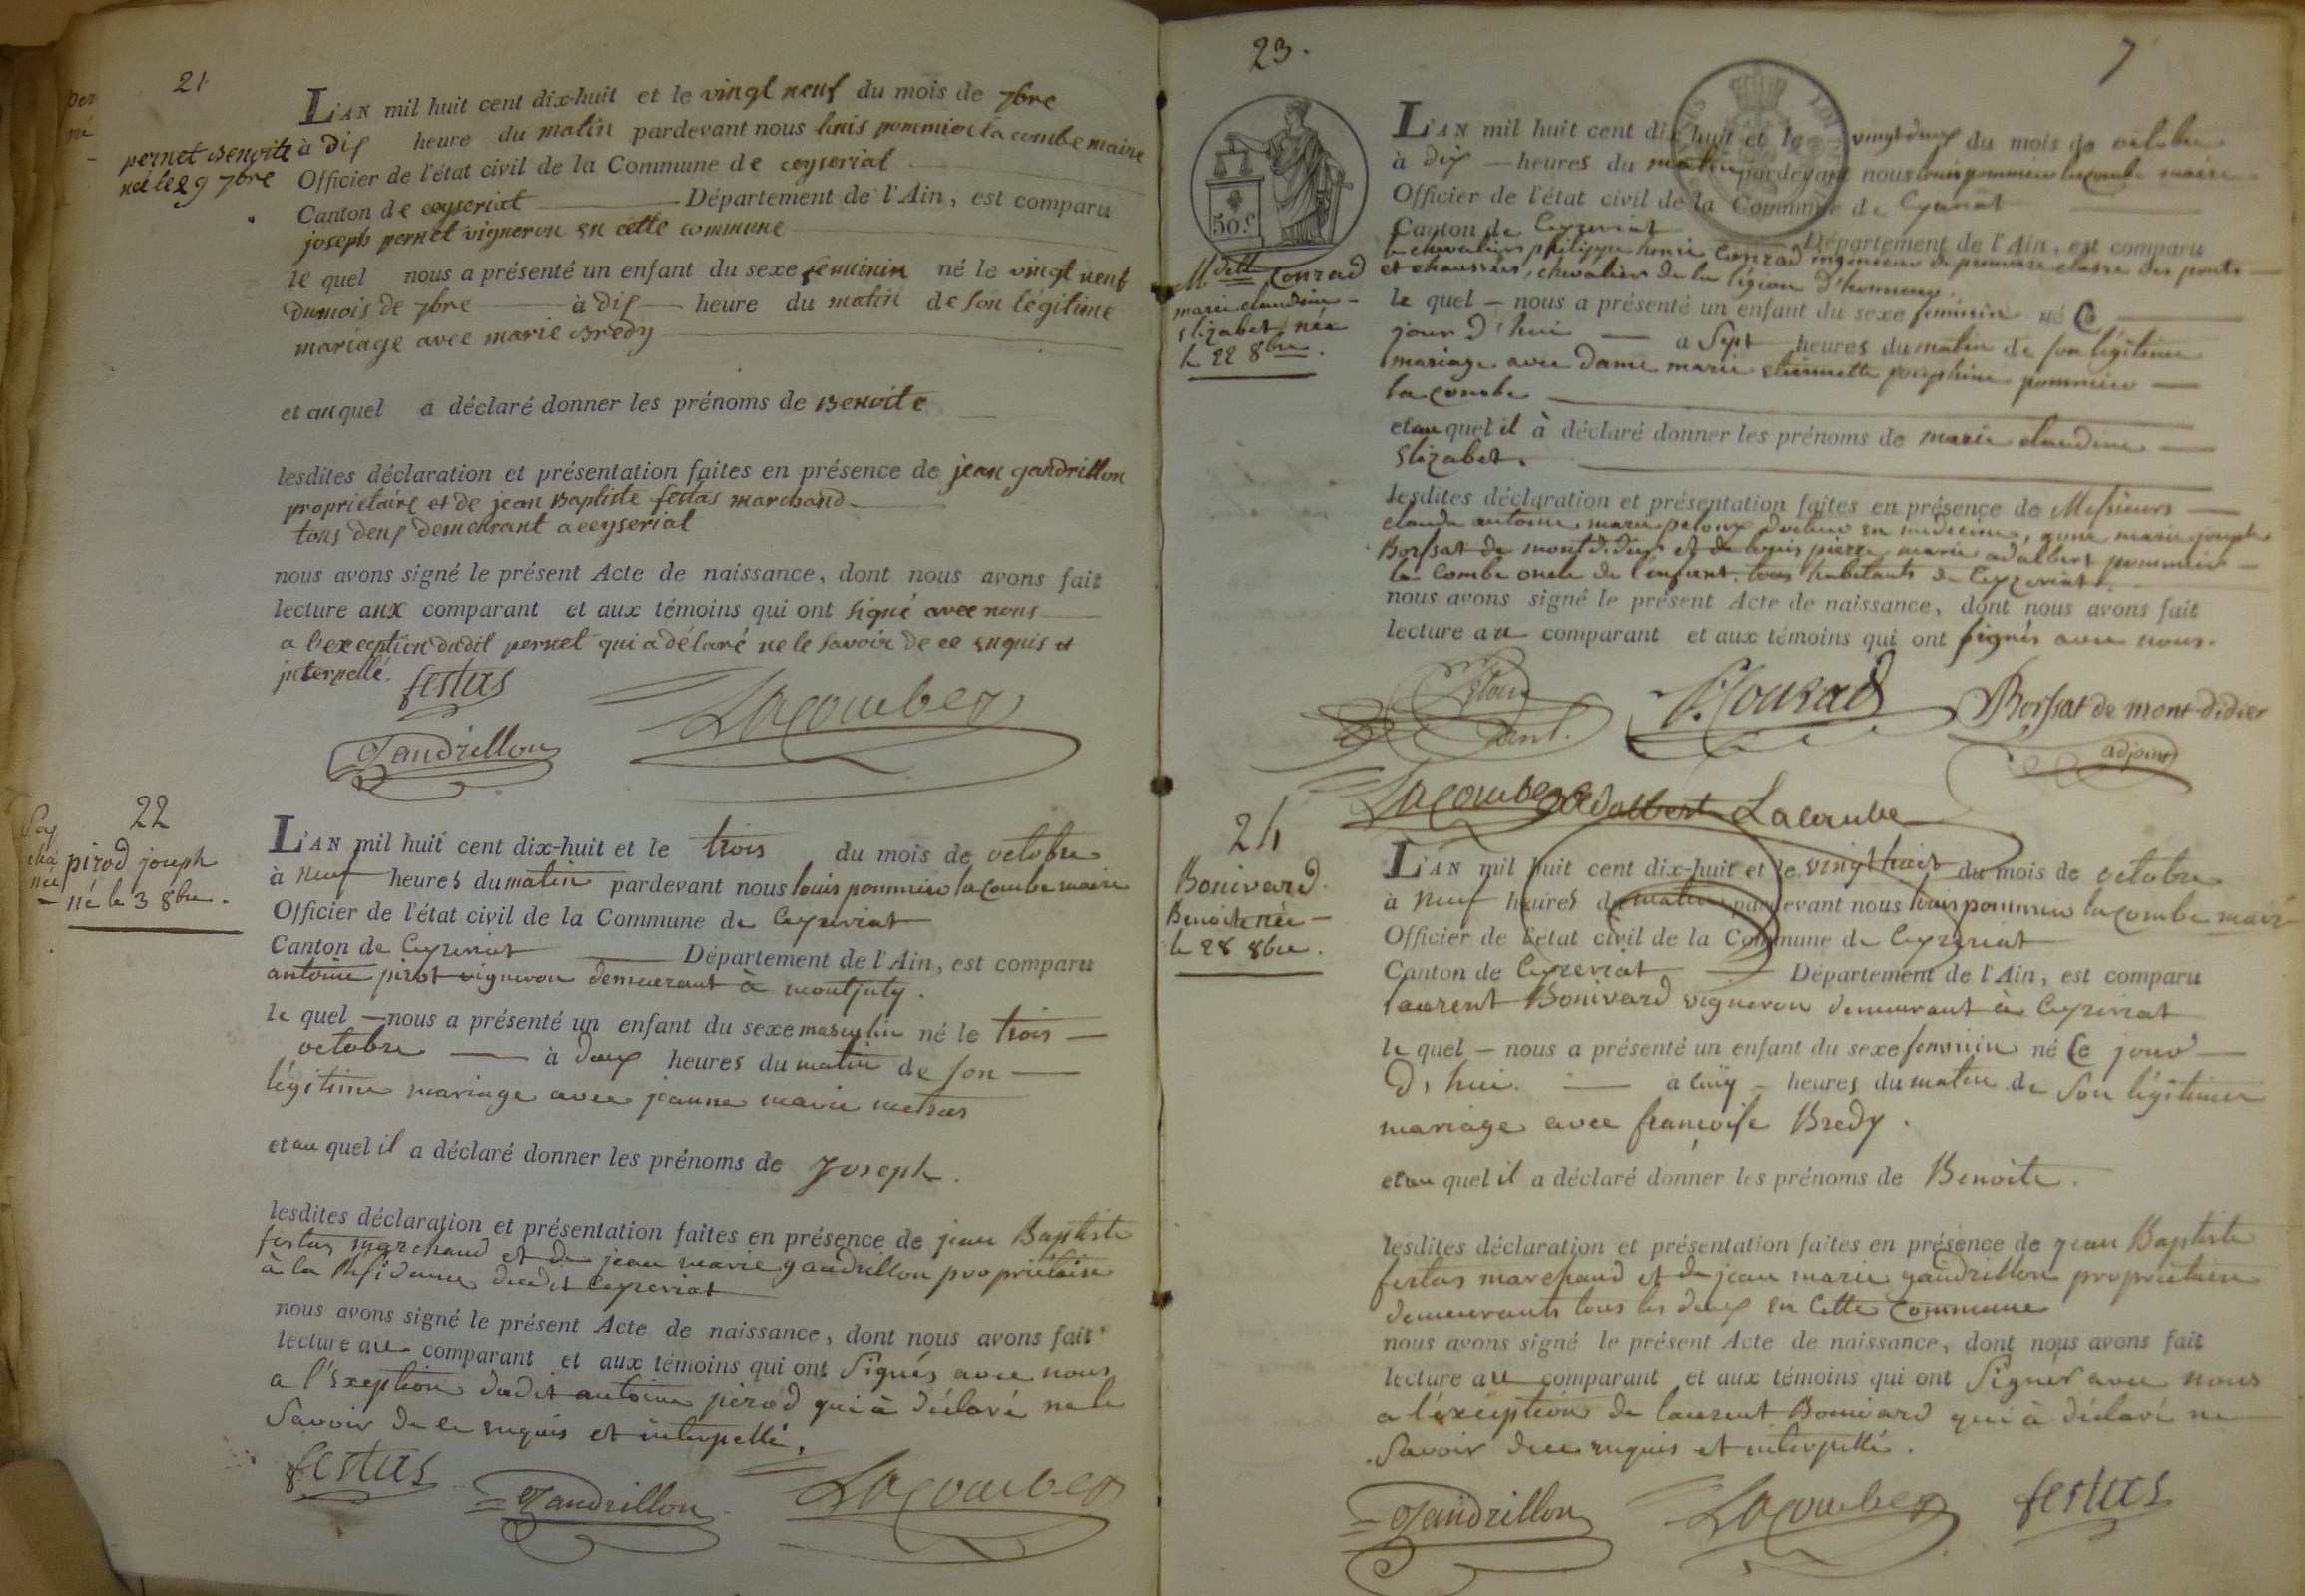 21
pernet Benoite
neé le 29 7bre
L'AN mil huit cent dix-huit et le vingt neuf du mois de 7bre
à dix heure du matin pardevant nous louis pommier la combe maire
Officier de l'état civil de la Commune de ceyseriat
Canton de ceyseriat Département de l'Ain, est comparu
joseph pernet vigneron en cette commune
le quel nous a présenté un enfant du sexe feminin né le vingt neuf
du mois de 7bre à dix heure du matin de son légitime
mariage avec marie Bredy
et auquel a déclaré donner les prénoms de Benoite
lesdites déclaration et présentation faites en présence de jean gandrillon
proprietaire et de jean Baptiste festas marchand
tous deux demeurant a ceyseriat
nous avons signé le présent Acte de naissance, dont nous avons fait
lecture aux comparant et aux témoins qui ont signé avec nous
a l'exception dudit pernet qui a délaré ne le savoir de ce enquis et
interpellé.
festas
Gandrillon
Lacombe
22
pirod joseph
né le 3 8bre.
L'AN mil huit cent dix-huit et le trois du mois de octobre
à neuf heures du matin pardevant nous louis pommier lacombe maire
Officier de l'état civil de la Commune de Ceyzeriat
Canton de Ceyzeriat Département de l'Ain, est comparu
antoine pirot vigneron demeurant à montjuly.
le quel nous a présenté un enfant du sexe masculin né le trois
octobre à deux heures du matin de son
légitime mariage avec jeanne marie metras
et au quel il a déclaré donner les prénoms de Joseph.
lesdites déclaration et présentation faites en présence de jean Baptiste
festas marchand et de jean marie gandrillon propriétaire
à la Résidence dudit Ceyzeriat
nous avons signé le présent Acte de naissance, dont nous avons fait
lecture au comparant et aux témoins qui ont Signés avec nous
a l'exeption dudit antoine pirod qui à déclaré ne le
Savoir de ce enquis et interpellé.
festas
Gandrillon
Lacombe
23.
7
50 c.
M.delle Conrad
marie claudine
Elizabet, née
le 22 8bre.
L'AN mil huit cent dix huit et le vingt deux du mois de octobre
à dix heures du matin pardevant nous louis pommier lacombe maire
Officier de l'état civil de la Commune de Ceyzeriat
Canton de Ceyzeriat Département de l'Ain, est comparu
le chevalier philippe henri Conrad ingenieur de premiere classe des ponts
et chaussées, chevalier de la légion d'honneur.
le quel nous a présenté un enfant du sexe feminin né Ce
jour d'hui à Sept heures du matin de son légitime
mariage avec dame marie etiennette josephine pommier
la Combe
et au quel il à déclaré donner les prénoms de marie claudine
Elizabet.
lesdites déclaration et présentation faites en présence de Messieurs
claude antoine marie peloux docteur en médecine, marie joseph
Borssat de montdidier et de louis pierre marie adalbert pommier
la Combe oncle de l'enfant. tous habitants de Ceyzeriat.
nous avons signé le présent Acte de naissance, dont nous avons fait
lecture au comparant et aux témoins qui ont signés avec nous.
P. Conrad
Borssat de mont-didier
adjoint
Lacombe
Adalbert Lacombe
24
Bonivard.
Benoite née
le 28 8bre.
L'AN mil huit cent dix-huit et le vingt huit du mois de octobre
à neuf heures du matin pardevant nous louis pommier lacombe maire
Officier de l'état civil de la Commune de Ceyzeriat
Canton de Ceyzeriat Département de l'Ain, est comparu
laurent Bonivard vigneron demeurant à Ceyzeriat
le quel nous a présenté un enfant du sexe feminin né Ce jour
d'hui. à cinq heures du matin de Son légitime
mariage avec françoise Bredy.
et au quel il a déclaré donner les prénoms de Benoite.
lesdites déclaration et présentation faites en présence de jean Baptiste
festas marchand et de jean marie gandrillon propriétaire
demeurants tous les deux en Cette Commune
nous avons signé le présent Acte de naissance, dont nous avons fait
lecture au comparant et aux témoins qui ont Signer avec nous
a l'exception de laurent Bonivard qui à déclaré ne
Savoir de ce enquis et interpellé.
Gandrillon
Lacombe
festas